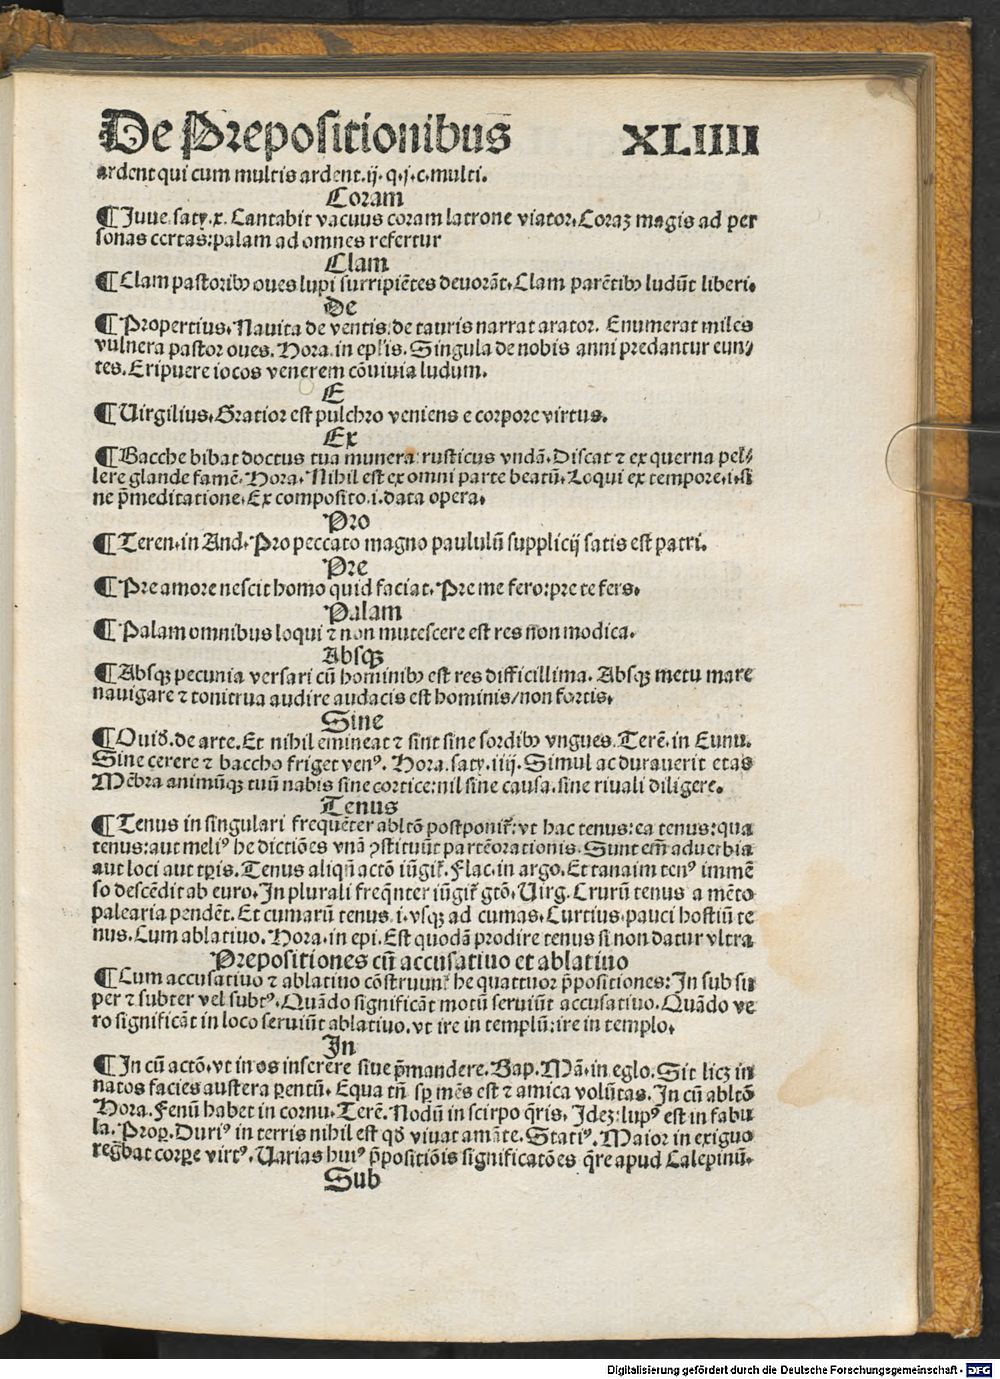 De Prepositionibus XLIIII
ardent qui cum multis ardent.ij.q.j.c.multi.
Coram
¶Juue.saty.x. Cantabit vacuus coram latrone viator.Coraꝫ magis ad per
sonas certas:palam ad omnes refertur
Clam
¶Clam pastoribꝰ oues lupi surripiẽtes deuorãt.Clam parẽtibꝰ ludũt liberi.
De
¶Propertius.Nauita de ventis:de tauris narrat arator. Enumerat miles
vulnera pastor oues. Hora.in eplis. Singula de nobis anni predantur eun/
tes.Eripuere iocos venerem cõuiuia ludum.
E
¶Uirgilius.Gratior est pulchro veniens e corpore virtus.
Ex
¶Bacche bibat doctus tua munera:rusticus vndã.Discat ⁊ ex querna pel/
lere glande famẽ.Hora.Nihil est ex omni parte beatũ.Loqui ex tempore.i.si
ne p̃meditatione.Ex composito.i.data opera.
Pro
¶Teren.in And.Pro peccato magno paululũ supplicij satis est patri.
Pre
¶Pre amore nescit homo quid faciat.Pre me fero:pre te fers.
Palam
¶Palam omnibus loqui ⁊ non mutescere est res non modica.
Absqꝫ
¶Absqꝫ pecunia versari cũ hominibꝰ est res difficillima. Absqꝫ metu mare
nauigare ⁊ tonitrua audire audacis est hominis/non fortis.
Sine
¶Ouid̉.de arte.Et nihil emineat ⁊ sint sine sordibꝰ vngues.Terẽ.in Eunu.
Sine cerere ⁊ baccho friget venꝰ. Hora.saty.iiij.Simul ac durauerit etas
Mẽbra animũqꝫ tuũ nabis sine cortice:nil sine causa.sine riuali diligere.
Tenus
¶Tenus in singulari frequẽter abltõ postponit᷑:vt hac tenus:ea tenus:qua
tenus:aut meliꝰ he dictiões vnã ꝯstituũt partẽ orationis.Sunt em̃ aduerbia
aut loci aut tꝑis.Tenus aliqñ actõ iũgit᷑.Flac.in argo.Et tanaim tenꝰ immẽ
so descẽdit ab euro.In plurali freqñter iũgit᷑ gtõ.Uirg.Crurũ tenus a mẽto
palearia pendẽt.Et cumarũ tenus.i.vsqꝫ ad cumas.Curtius.pauci hostiũ te
nus.Cum ablatiuo.Hora.in epi.Est quodã prodire tenus si non datur vltra
Prepositiones cũ accusatiuo et ablatiuo
¶Cum accusatiuo ⁊ ablatiuo cõstruunt᷑ he quattuor p̃positiones:In sub su
per ⁊ subter vel subtꝰ.Quãdo significãt motũ seruiũt accusatiuo.Quãdo ve
ro significãt in loco seruiũt ablatiuo.vt ire in templũ:ire in templo.
In
¶In cũ actõ.vt in os inserere siue p̃mandere.Bap.Mã.in eglo.Sit licꝫ in
natos facies austera ꝑentũ. Equa tñ sꝑ mẽs est ⁊ amica volũtas.In cũ abltõ
Hora.Fenũ habet in cornu.Terẽ.Nodũ in scirpo q̃ris. Ideꝫ:lupꝰ est in fabu
la.Proꝑ.Duriꝰ in terris nihil est qd̉ viuat amãte.Statiꝰ.Maior in exiguo
regñbat corꝑe virtꝰ.Uarias huiꝰ p̃positiõis significatões q̃re apud Calepinũ.
Sub
Digitalisierung gefördert durch die Deutsche Forschungsgemeinschaft - DFG